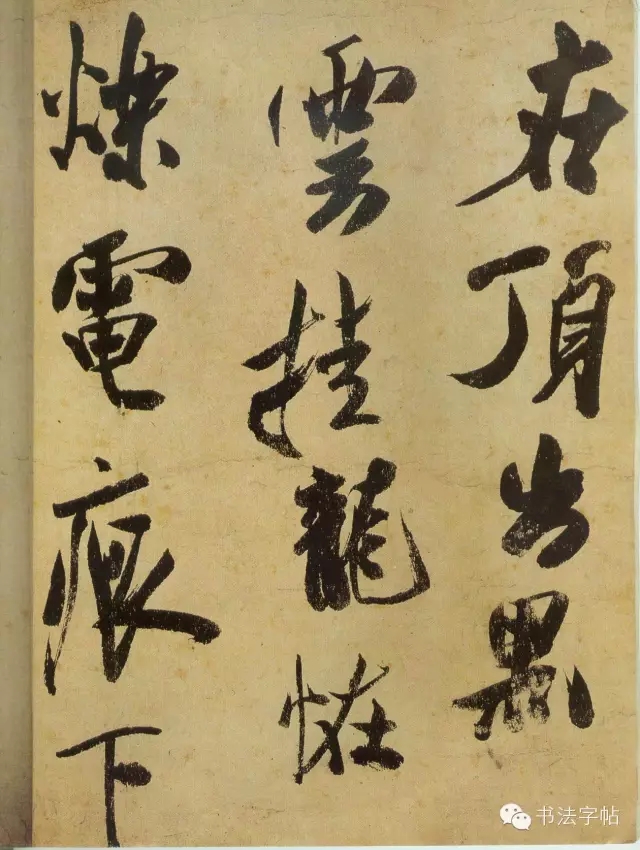 在頂出黑
雲挂龍怪
爍電痕下
书法字帖